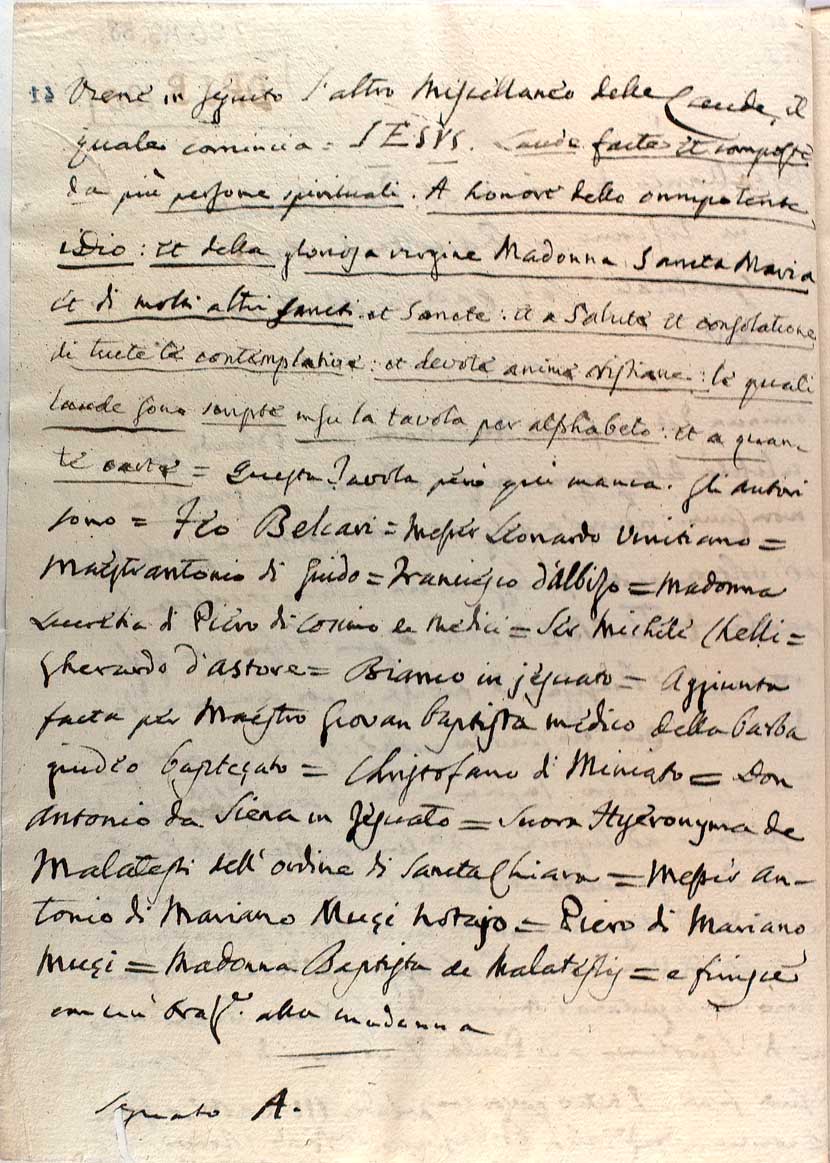 Viene in seguito l'altro Miscellaneo delle Laude, il
quale comincia = IESVS. Laude facte et composte
da più persone spirituali. A honore dello onnipotente
iDio: et della gloriosa vergine Madonna Sancta Maria
et di molti altri sancti et Sancte: et a Salute et consolatione
di tucte le contemplative: et devote anime christiane: le quali
laude sono scripte insu la tavola per alphabeto: et a quan-
te carte = Questa Tavola però qui manca. Gli autori
sono = Feo Belcari = Messer Leonardo Vinitiano =
Maestrantonio di Guido = Francesco d'Albizo = Madonna
Lucretia di Piero di Cosimo de Medici = Ser Michele Chelli =
Gherardo d'Astore = Bianco in jesuato = Aggiunta
facta per Maestro Giovan baptista medico della barba
giudeo baptezato = Christofano di Miniato = Don
Antonio da Siena in Jesuato = Suora Hyeronyma de
Malatesti dell' ordine di Sancta Chiara = Messer An-
tonio di Mariano Muzi Notajo = Piero di Mariano
Muzi = Madonna Baptista de Malatestis = e finisce
alla madonna
Segnato A.